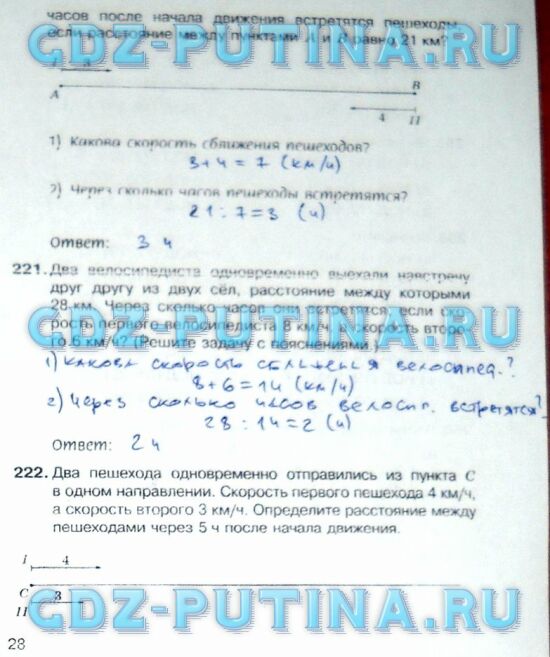 часов после начала движения встретятся пешеходы,
если расстояние между пунктами A и B равно 21 км?
GDZ-PUTINA.RU
I 3
A B
4 II
1) Какова скорость сближения пешеходов?
3+4=7 (км/ч)
GDZ-PUTINA.RU
2) Через сколько часов пешеходы встретятся?
21:7=3 (ч)
Ответ: 3 ч
GDZ-PUTINA.RU
221. Два велосипедиста одновременно выехали навстречу
друг другу из двух сёл, расстояние между которыми
28 км. Через сколько часов они встретятся, если ско-
рость первого велосипедиста 8 км/ч, а скорость второ-
го 6 км/ч? (Решите задачу с пояснениями.)
GDZ-PUTINA.RU
1) какова скорость сближения велосипед.?
8+6=14 (км/ч)
2) Через сколько часов велосип. встретятся?
28:14=2 (ч)
GDZ-PUTINA.RU
Ответ: 2 ч
222. Два пешехода одновременно отправились из пункта C
в одном направлении. Скорость первого пешехода 4 км/ч,
а скорость второго 3 км/ч. Определите расстояние между
пешеходами через 5 ч после начала движения.
I 4
C 3
II
GDZ-PUTINA.RU
28